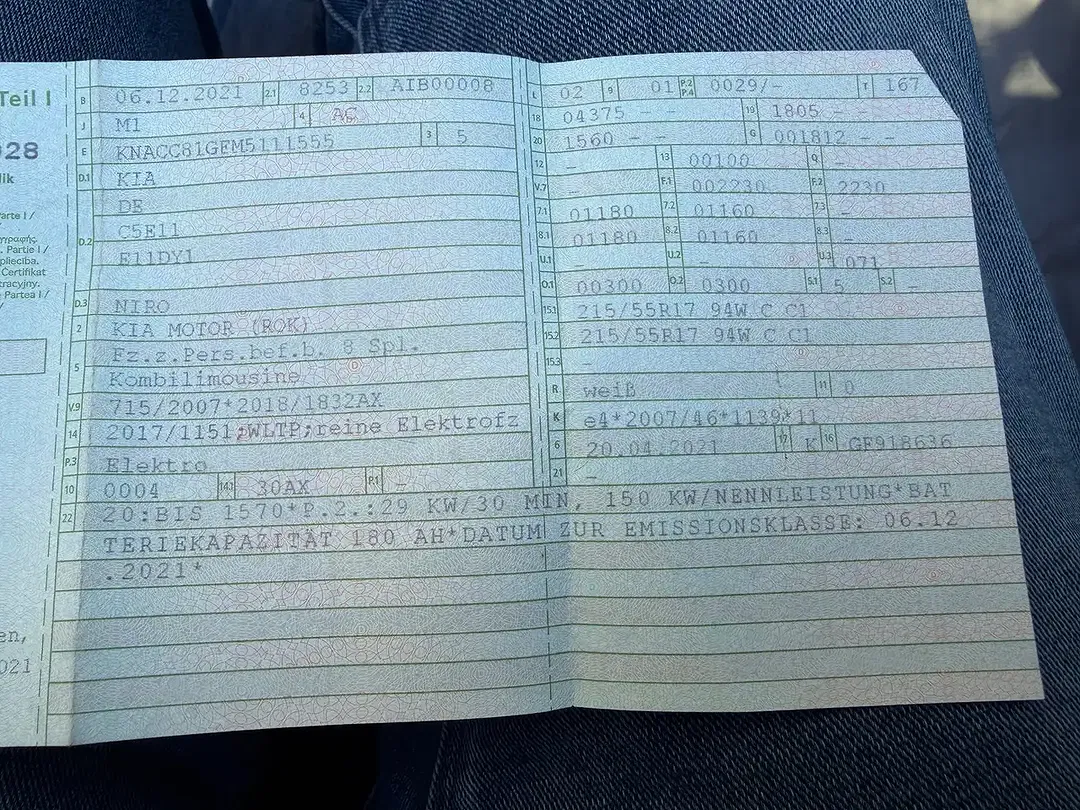 Teil I
28
lik
arte I /
γγραφής.
. Partie I /
plieciba.
Certifikat
tracyjny.
Partea I /
en,
021
B 06.12.2021 2.1 8253 2.2 AIB00008
J M1 4 AC
E KNACC81GFM5111555 3 5
D.1 KIA
DE
D.2 C5E11
E11DY1
D.3 NIRO
2 KIA MOTOR (ROK)
5 Fz.z.Pers.bef.b. 8 Spl.
Kombilimousine
V.9 715/2007*2018/1832AX
14 2017/1151;WLTP;reine Elektrofz
P.3 Elektro
10 0004 14.1 30AX P.1 -
L 02 9 01 P.2 P.4 0029/- T 167
18 04375 - - 19 1805 - -
20 1560 - - G 001812 - -
12 - 13 00100 Q -
V.7 - F.1 002230 F.2 2230
7.1 01180 7.2 01160 7.3 -
8.1 01180 8.2 01160 8.3 -
U.1 - U.2 U.3 071
O.1 00300 O.2 0300 S.1 5 S.2 -
15.1 215/55R17 94W C C1
15.2 215/55R17 94W C C1
15.3 -
R weiß 11 0
K e4*2007/46*1139*11
6 20.04.2021 17 K 16 GF918636
21 -
22 20:BIS 1570*P.2.:29 KW/30 MIN, 150 KW/NENNLEISTUNG*BAT
TERIEKAPAZITÄT 180 AH*DATUM ZUR EMISSIONSKLASSE: 06.12
.2021*